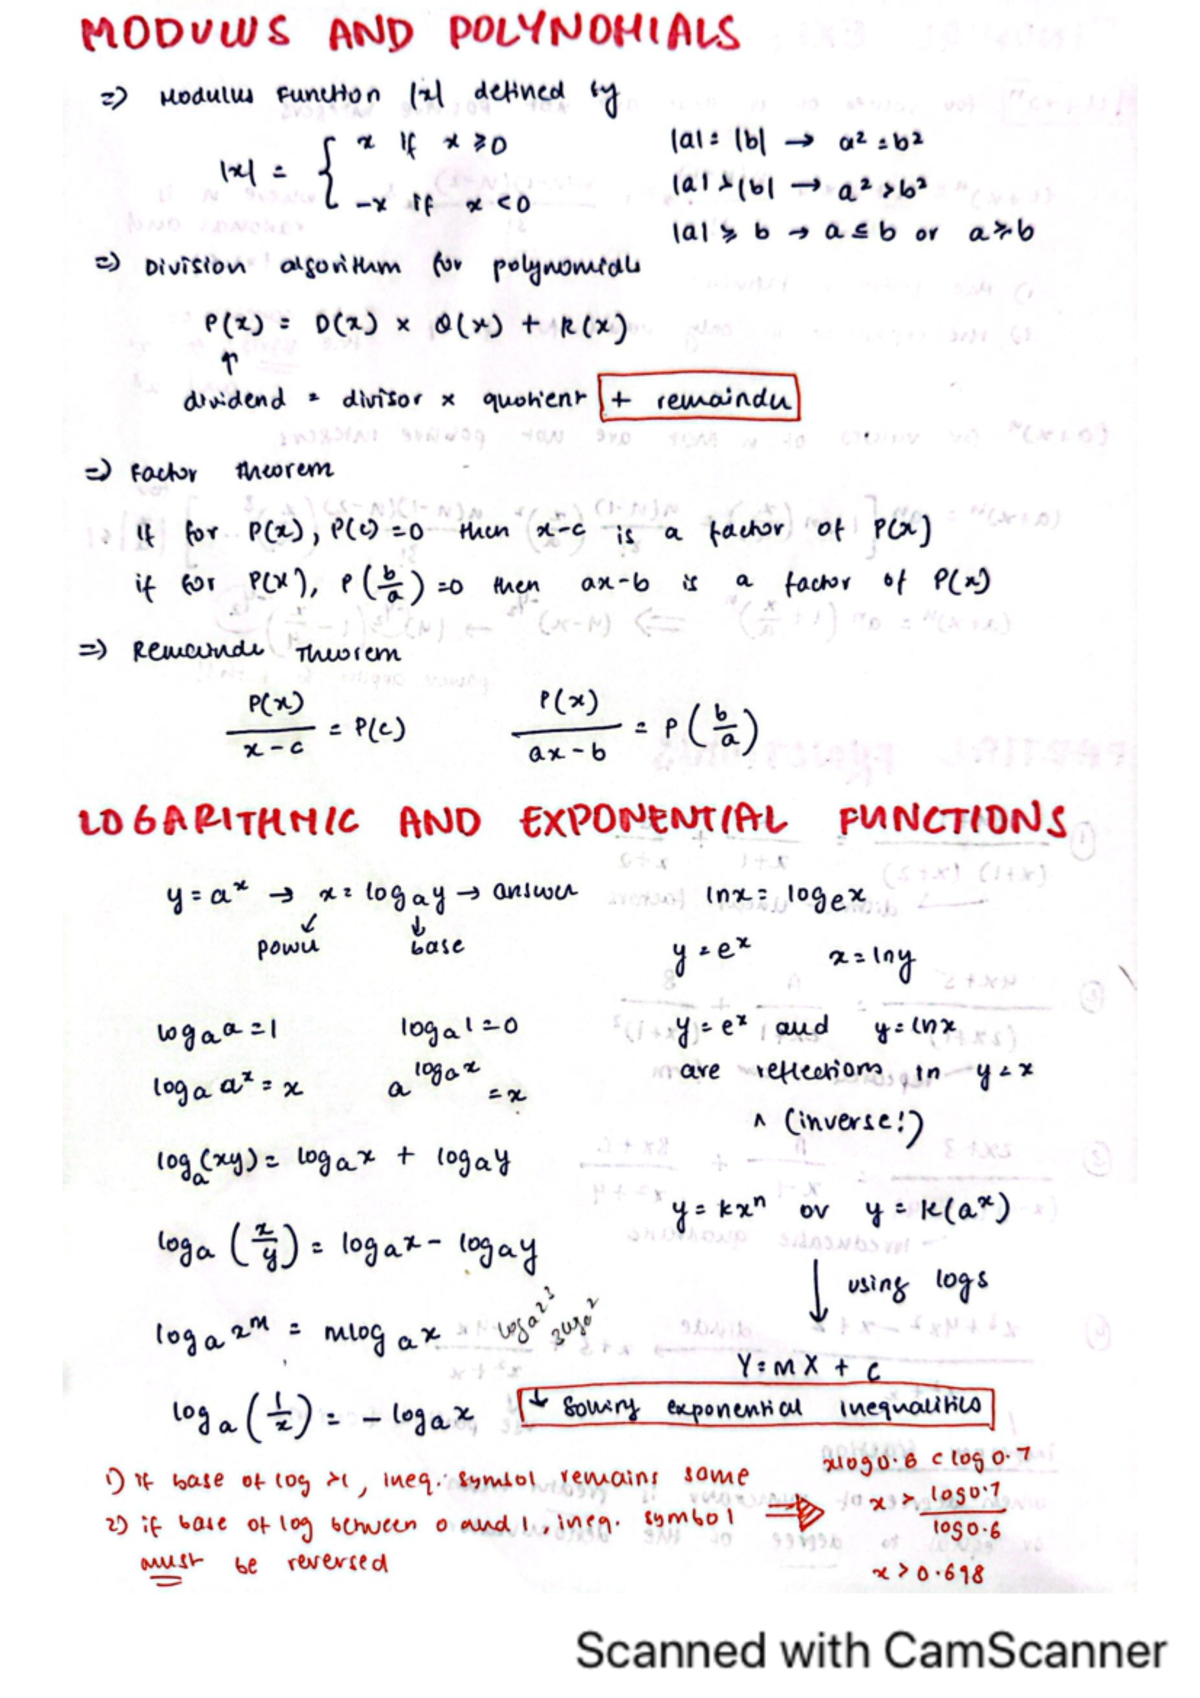 MODULUS AND POLYNOMIALS
=> Modulus Function |x| defined by
|x| = { x if x ≥ 0
-x if x < 0
|a| = |b| → a² = b²
|a| > |b| → a² > b²
|a| ≥ b → a ≤ b or a ≥ b
=> Division algorithm for polynomials
P(x) = D(x) × Q(x) + R(x)
↑
dividend = divisor × quotient + remainder
=> Factor theorem
If for P(x), P(c) = 0 then x-c is a factor of P(x)
if for P(x), P(b/a) = 0 then ax-b is a factor of P(x)
=> Remainder Theorem
P(x)/(x-c) = P(c)    P(x)/(ax-b) = P(b/a)
LOGARITHMIC AND EXPONENTIAL FUNCTIONS
y = aˣ → x = logₐy → answer
power    base
lnx = logₑx
y = eˣ    x = lny
logₐa = 1    logₐ1 = 0
y = eˣ and y = lnx
are reflections in y = x
^ (inverse!)
logₐaˣ = x    a^(logₐx) = x
logₐ(xy) = logₐx + logₐy
y = kxⁿ or y = k(aˣ)
logₐ(x/y) = logₐx - logₐy
↓ using logs
logₐxᵐ = mlogₐx
Y = mX + c
logₐ(1/x) = -logₐx
↓ Solving exponential inequalities
1) if base of log >1, ineq. symbol remains same
2) if base of log between 0 and 1, ineq. symbol
must be reversed
xlog0.6 < log0.7
x > log0.7/log0.6
x > 0.698
Scanned with CamScanner